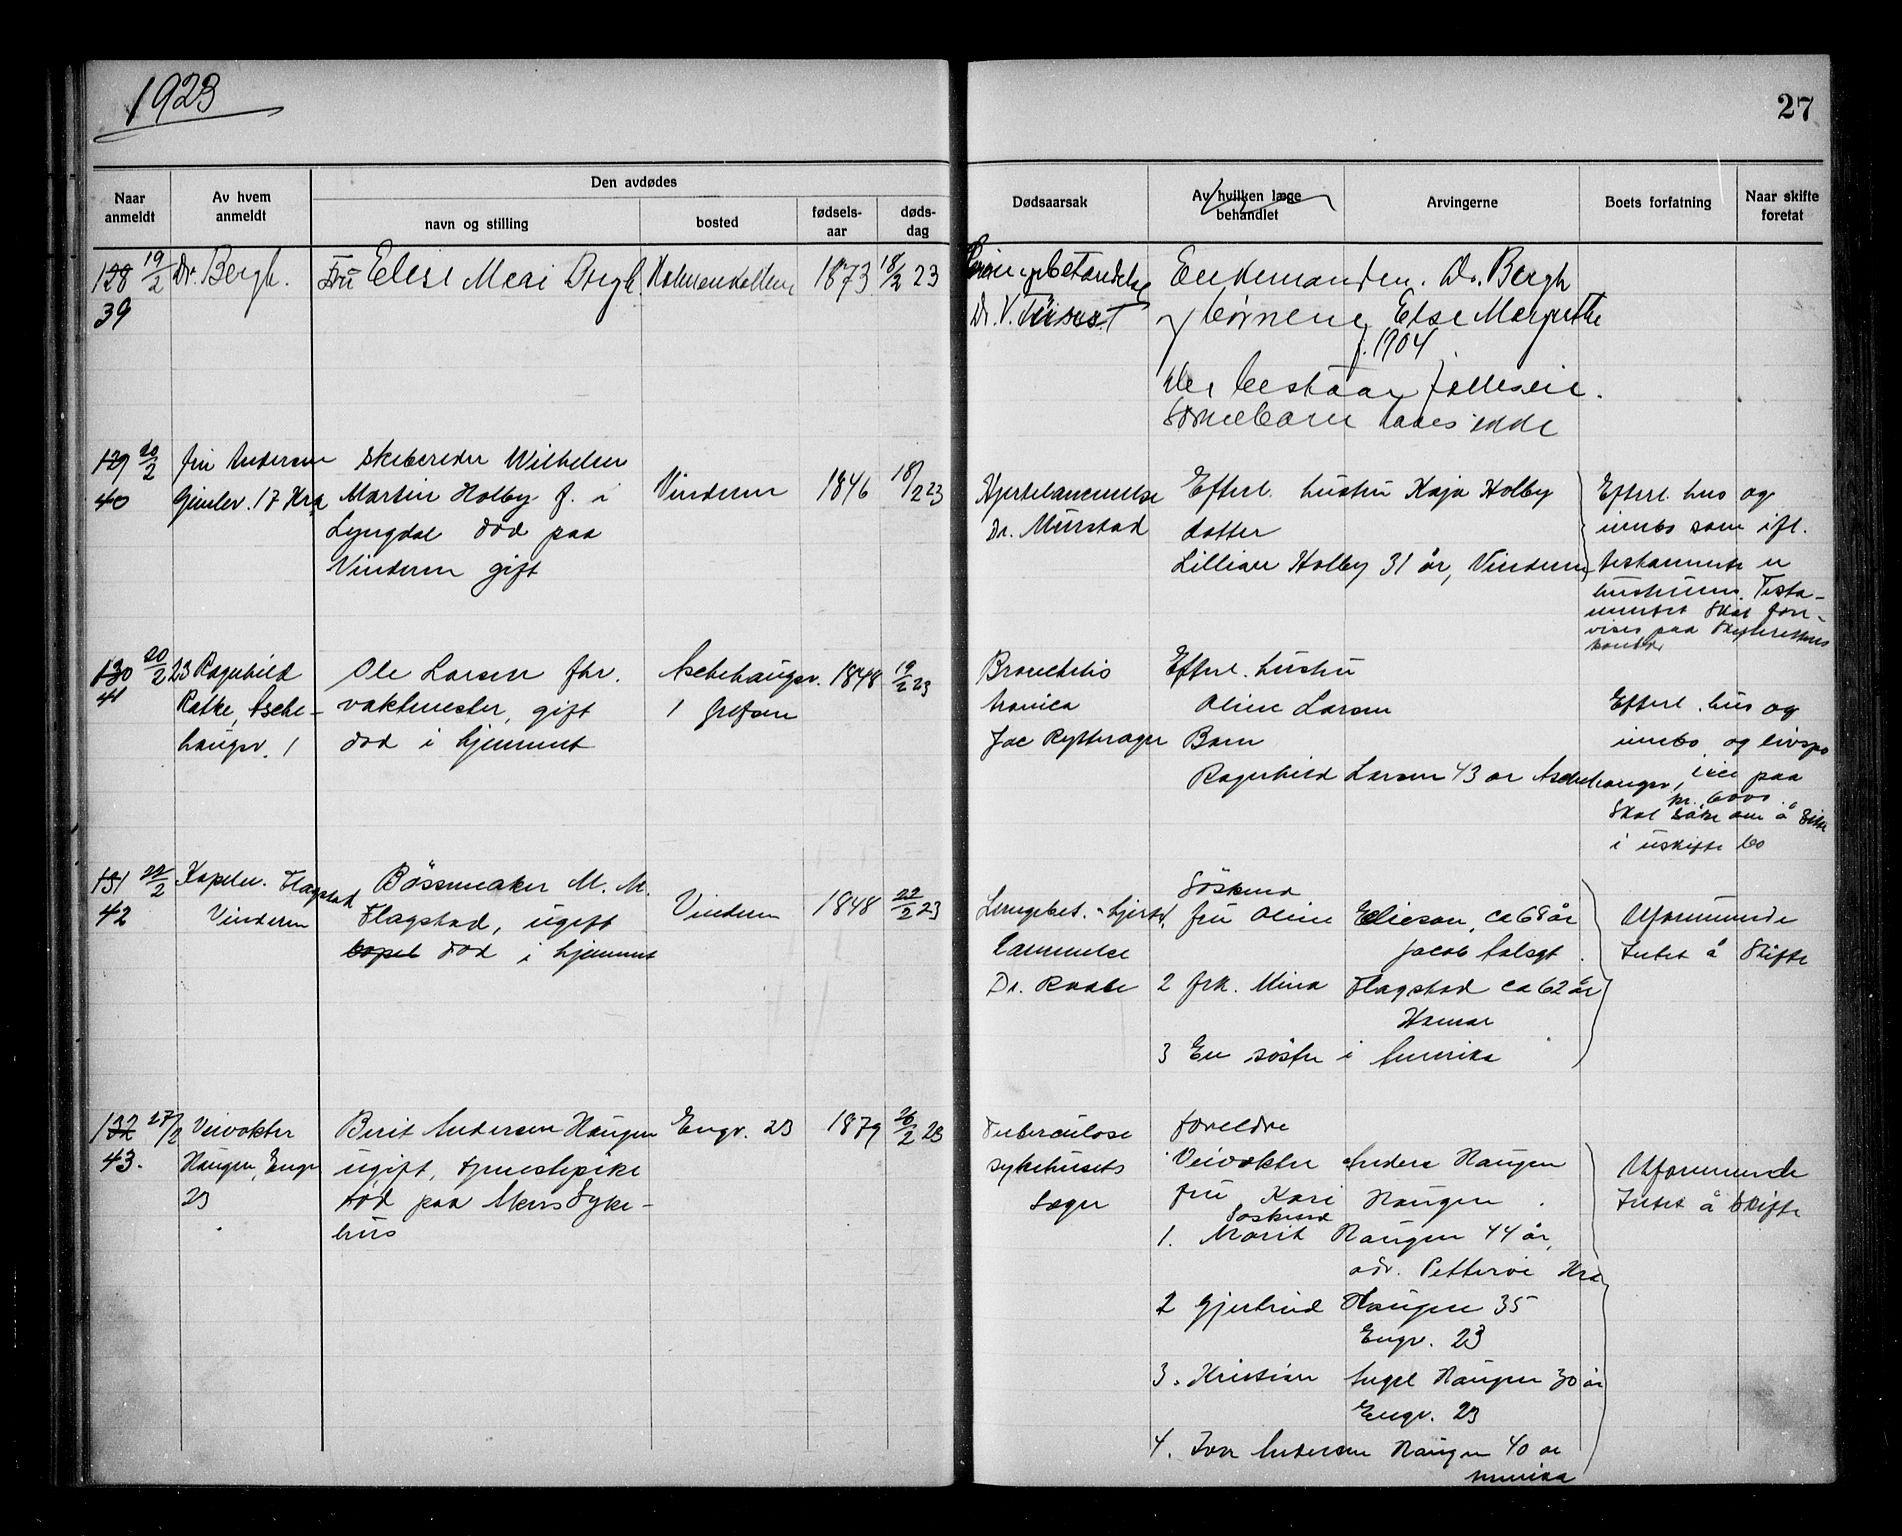 1923
27
Naar anmeldt
Av hvem anmeldt
Den avdødes
navn og stilling
bosted
fødsels-aar
døds-dag
Dødsaarsak
Av hvilken læge behandlet
Arvingerne
Boets forfatning
Naar skifte foretat
128 19/2 Dr. Bergh. Fru Elise Marie Bergh. Holmenkollen 1873 18/2 23
39
Enkemanden. Dr. Bergh
og børnene Else Margrethe
f. 1904
Der bestaar fælleseie.
Særkulbarn haves ikke
129 20/2 fru Andersen
40 Gimlev. 17 Kra
Skibsreder Wilhelm
Martin Holby f. i
Lyngdal død paa
Vinderen gift
Vinderen 1846 18/2 23
Hjertelammelse
Dr. Mürstad
Efterl. hustru Kaja Holby
datter
Lillian Holby 31 år, Vinderen
Efterl. hus og
innbo som ifl.
testamente er
hustruens. Testa-
mentet skal fore-
vises paa Skifterettens
kontor
130 20/2 23 Ragnhild
41 Ratke, Asche-
haugv. 1
Ole Larsen fhv.
vaktmester, gift
død i hjemmet
Aschehaugv. 1848 19/2 23
1 Grefsen
Bronchitis
kronica
Jac Rytterager
Efterl. hustru
Oline Larsen
Barn
Ragnhild Larsen 43 år Aschehaugv. 1
Efterl. hus og
innbo og livspo
lice paa
kr. 6000.
Skal søke om å sitte
i uskifte bo
131 22/2 Kapelm. Flagstad
42 Vinderen
Bössmaker M. M.
Flagstad, ugift
død i hjemmet
Vinderen 1848 22/2 23
Lungebet. hjerte
lammelse
Dr. Raabe
Söskend
1 fru Oline Ellesen, ca 68 år
Jacob Aalsgt.
2 frk. Mina Flagstad ca 62 år
Hamar
3 En søster i Amerika
Uformuende
Intet å Skifte
132 27/2 Veivokter
43. Haugen, Engv
23
Berit Andersen Haugen
ugift, tjenestepike
død paa Akers Syke-
hus
Engv. 23 1879 26/2 23
Tuberculose
sykehusets
læger
Foreldre
Veivokter Anders Haugen
fru Kari Haugen
Søskend
1. Marit Haugen 44 år,
adr. Petterøe Kra
2 Gjertrud Haugen 35
Engv. 23
3. Kristian Engel Haugen 30 år
Engv. 23
4. Ivar Andersen Haugen 40 år
Amerika
Uformuende
Intet å Skifte